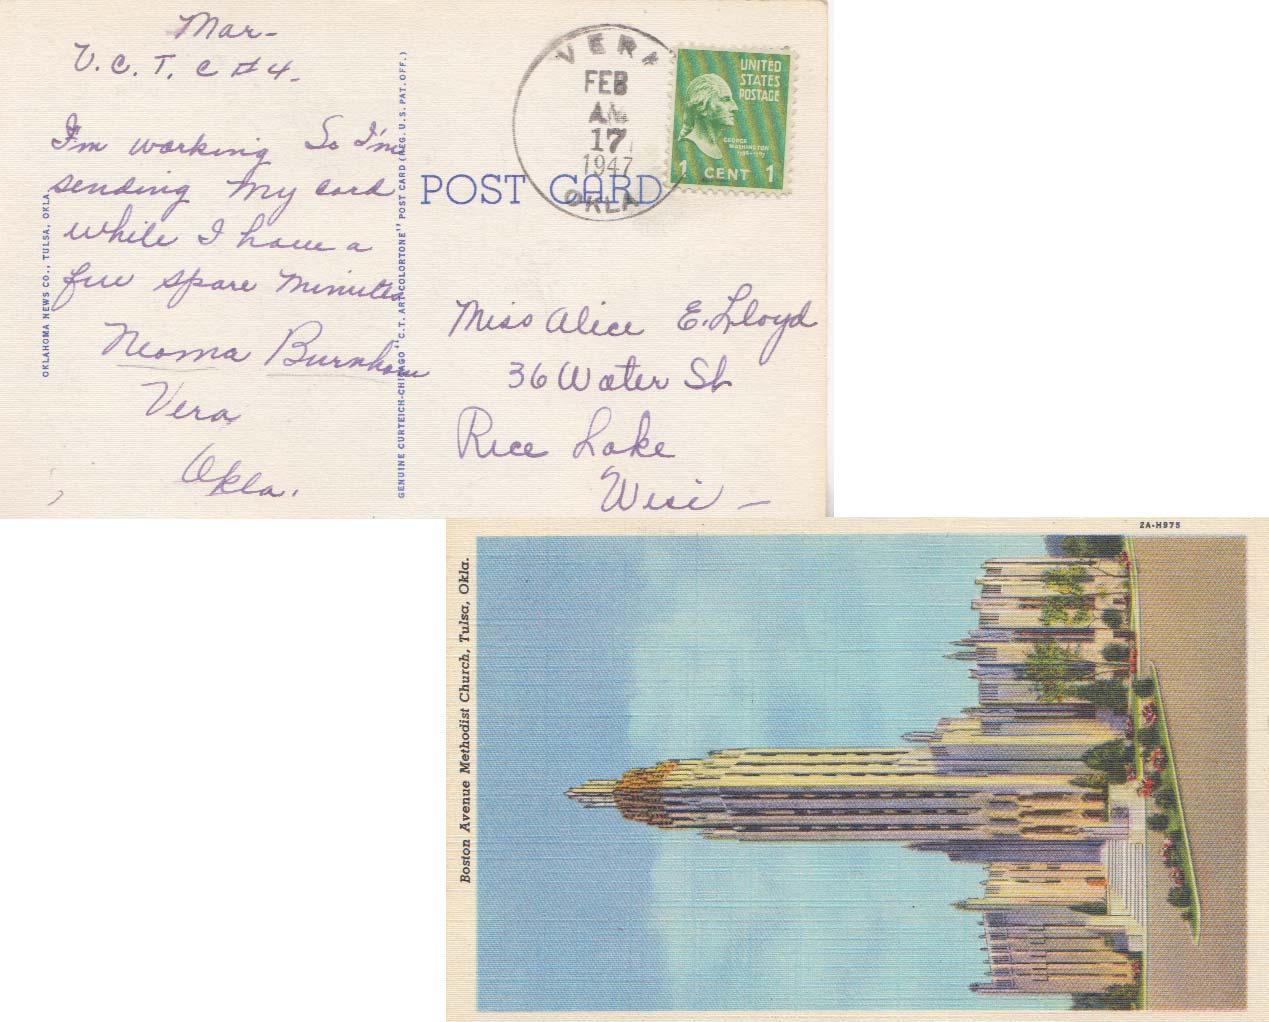 Mar-
V.C.T. C #4-
I'm working So I'm
sending my card
while I have a
few spare minutes
Neoma Burnham
Vera
Okla.
OKLAHOMA NEWS CO., TULSA, OKLA.
GENUINE CURTEICH-CHICAGO "C.T. ART-COLORTONE" POST CARD (REG. U.S. PAT. OFF.)
POST CARD
VERA
FEB
AM
17
1947
OKLA
UNITED
STATES
POSTAGE
GEORGE
WASHINGTON
1 CENT 1
Miss Alice E. Lloyd
36 Water St
Rice Lake
Wisc -
2A-H975
Boston Avenue Methodist Church, Tulsa, Okla.